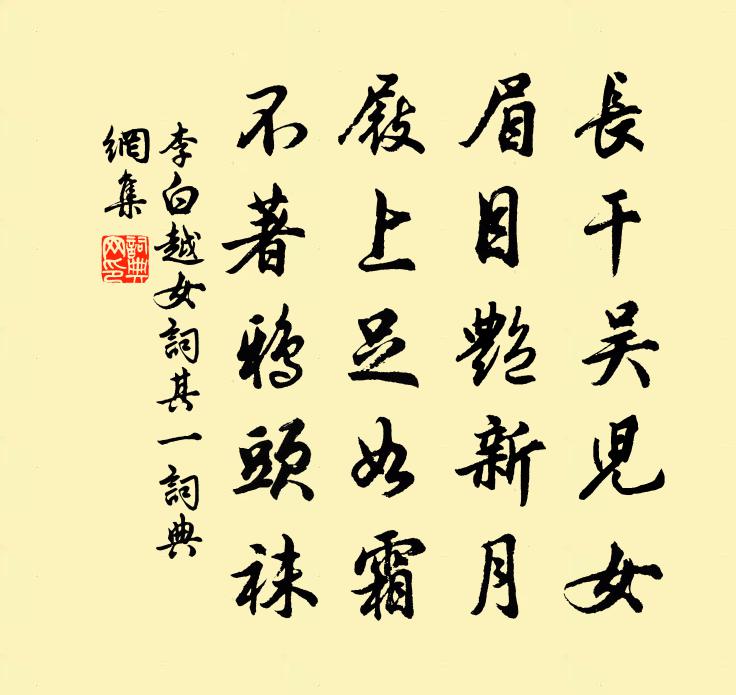 長干吴児女
眉目艶新月
屐上足如霜
不著鴉頭袜
李白越女詞其一詞典
網集
詞典
网印